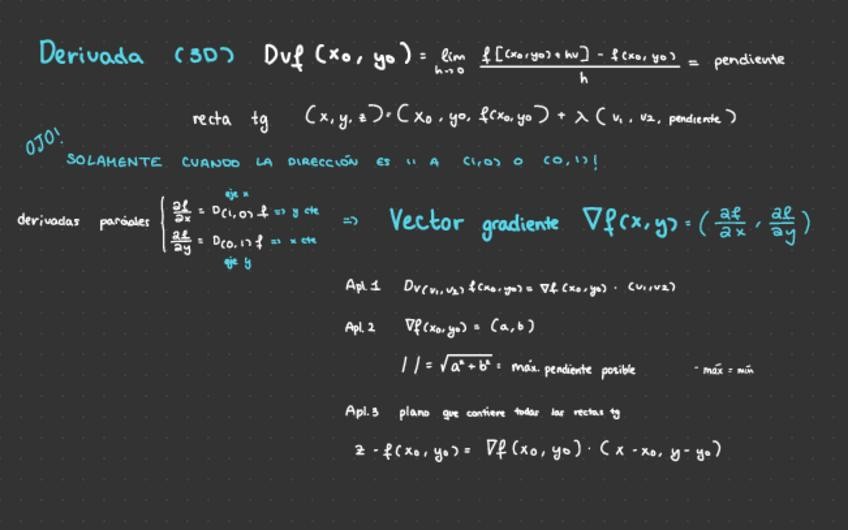 Derivada (3D) Dvf (x₀, y₀) = lim h→0 f[(x₀,y₀) + hv] - f(x₀, y₀) / h = pendiente
recta tg (x, y, z) = (x₀, y₀, f(x₀, y₀)) + λ (v₁, v₂, pendiente)
OJO!
SOLAMENTE CUANDO LA DIRECCIÓN ES " A (1,0) O (0,1)!
eje x
derivadas parciales { ∂f/∂x = D(1,0) f => y cte
∂f/∂y = D(0,1) f => x cte
eje y
=> Vector gradiente ∇f(x,y) = (∂f/∂x, ∂f/∂y)
Apl.1 Dv(v₁,v₂) f(x₀,y₀) = ∇f (x₀,y₀) · (v₁,v₂)
Apl.2 ∇f(x₀,y₀) = (a,b)
| | = √a² + b² = máx. pendiente posible - máx = mín
Apl.3 plano que contiene todas las rectas tg
z - f(x₀, y₀) = ∇f (x₀, y₀) · (x - x₀, y - y₀)